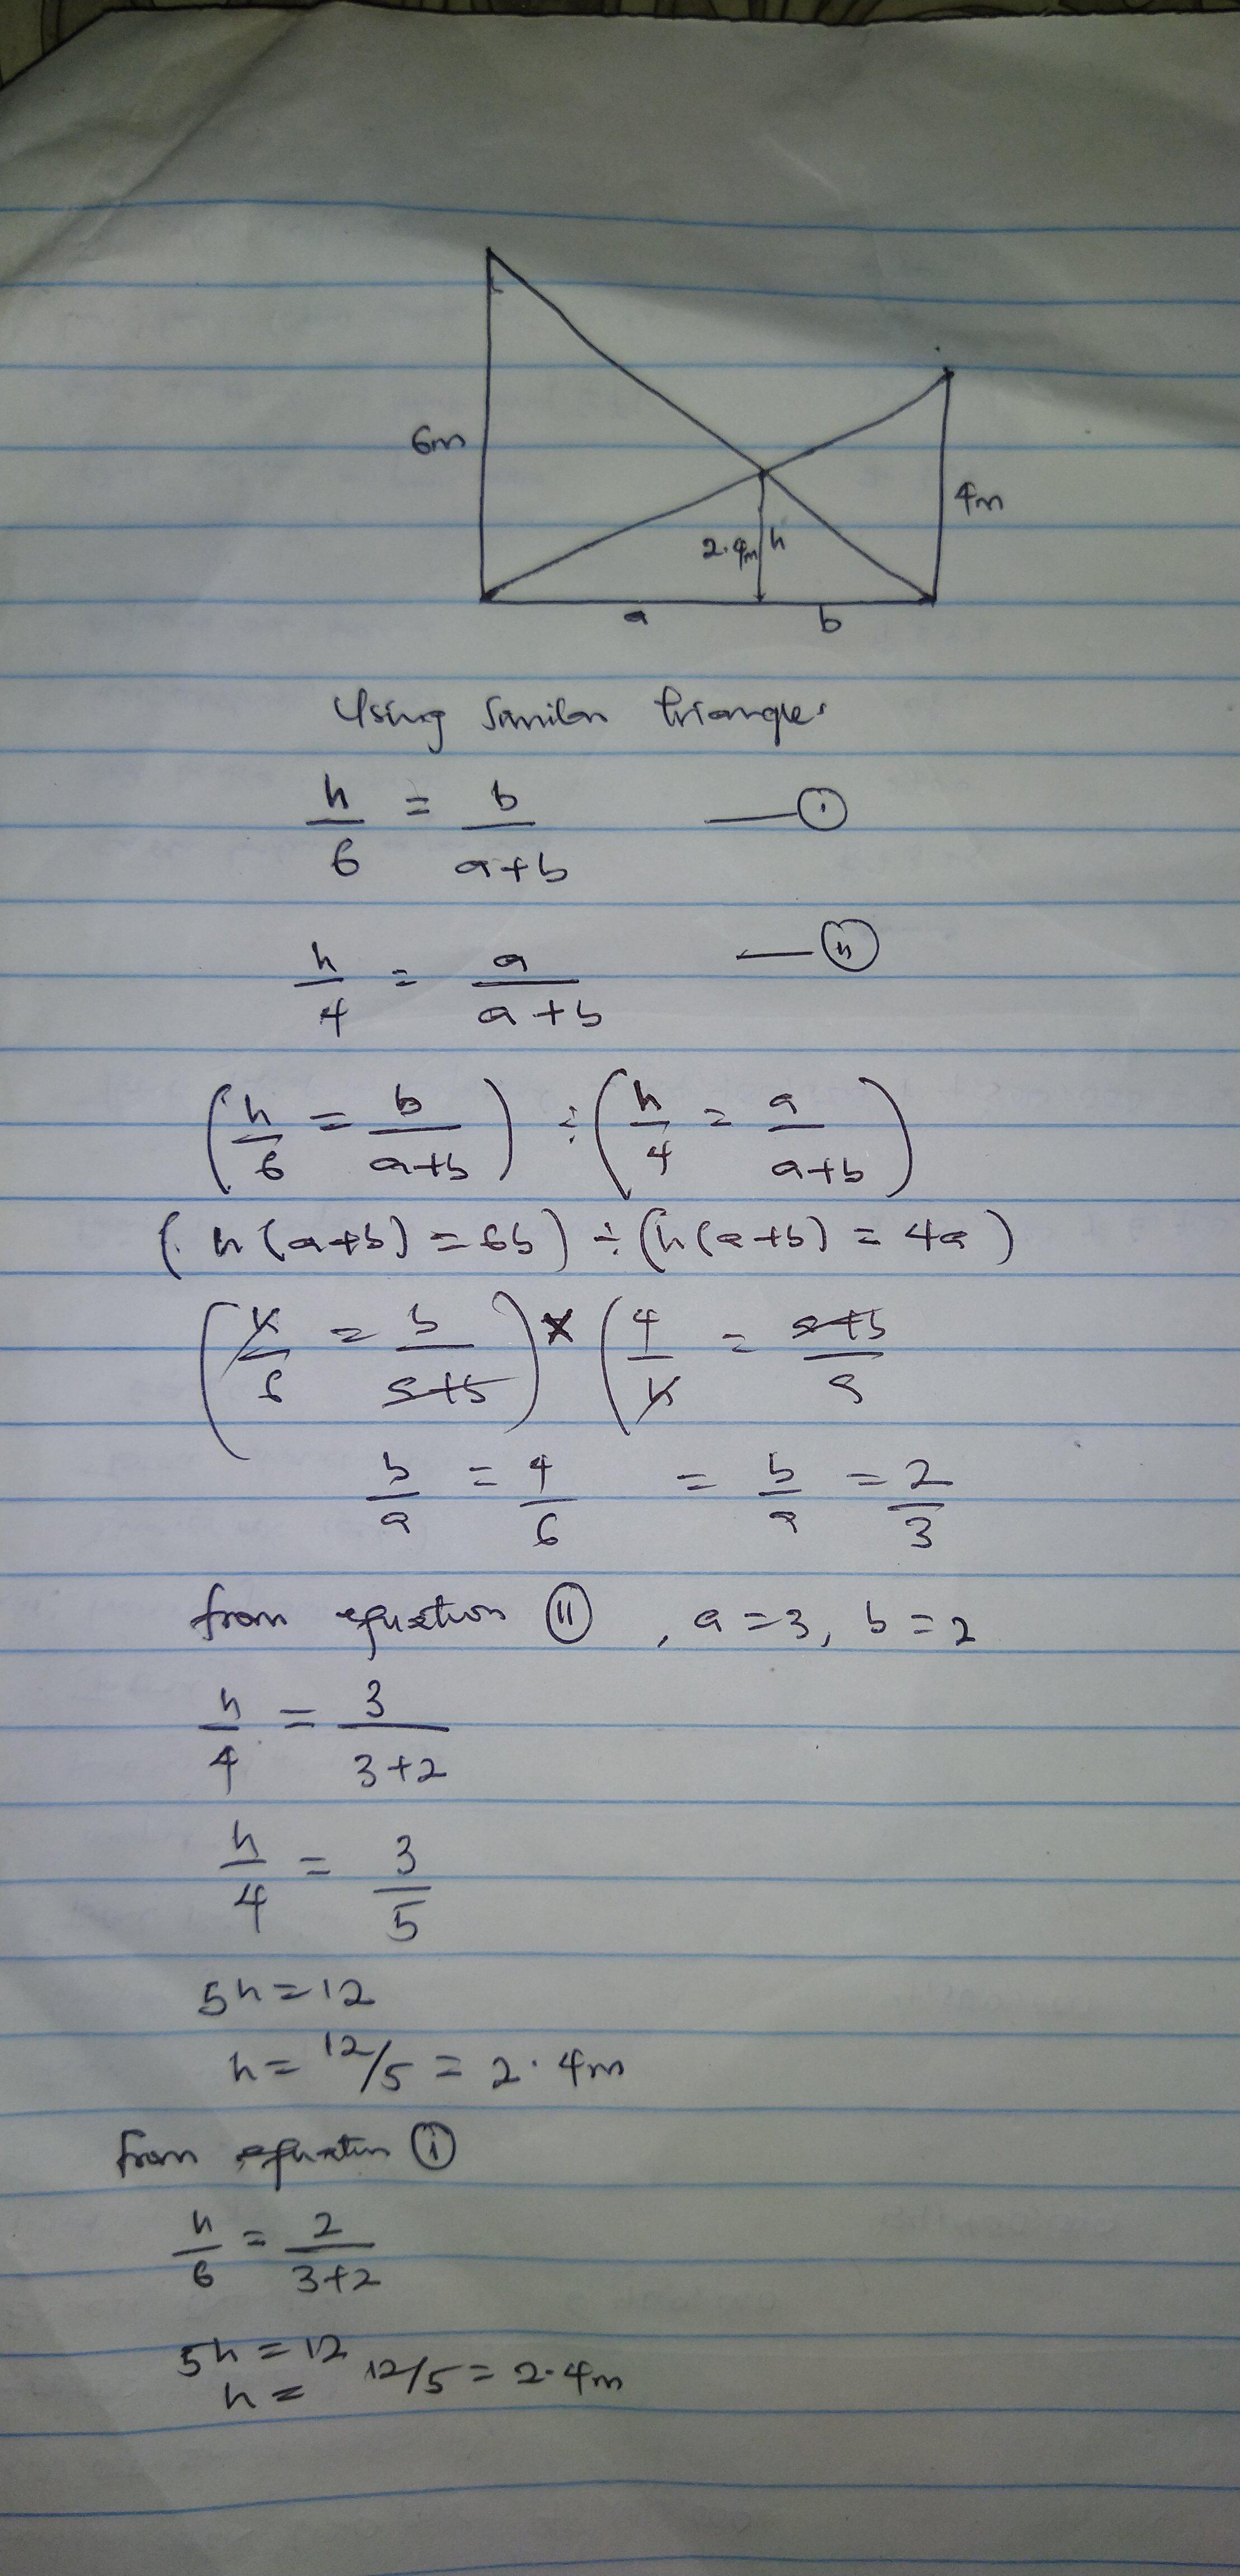 6m
4m
2.4m h
a b
Using Similar triangles
h/6 = b/(a+b) — (i)
h/4 = a/(a+b) — (ii)
(h/6 = b/(a+b)) ÷ (h/4 = a/(a+b))
(h(a+b) = 6b) ÷ (h(a+b) = 4a)
(h/6 = b/(a+b)) × (4/h = (a+b)/a)
b/a = 4/6 = b/a = 2/3
from equation (ii), a = 3, b = 2
h/4 = 3/(3+2)
h/4 = 3/5
5h = 12
h = 12/5 = 2.4m
from equation (i)
h/6 = 2/(3+2)
5h = 12
h = 12/5 = 2.4m